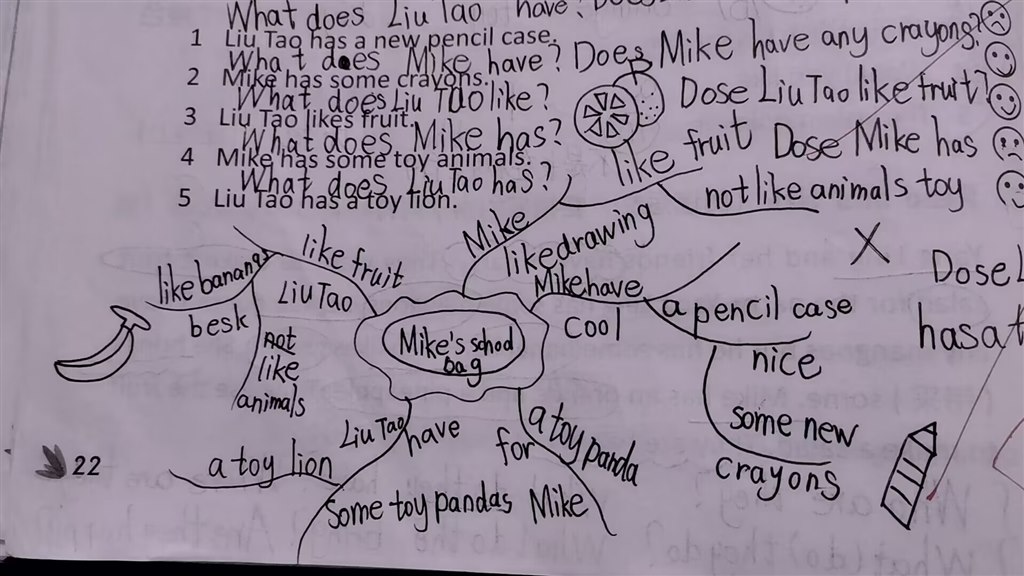 What does Liu Tao have?
1 Liu Tao has a new pencil case.
What does Mike have? Does Mike have any crayons?
2 Mike has some crayons.
What does Liu Tao like? Dose Liu Tao like fruit?
3 Liu Tao likes fruit.
What does Mike has? Dose Mike has
4 Mike has some toy animals.
What does Liu Tao has?
5 Liu Tao has a toy lion.
like fruit
not like animals toy
Mike
like drawing
like fruit
like banana
Liu Tao
besk
not
like
animals
Mike have
a pencil case
Cool
nice
some new
crayons
Mike's school
bag
Dose L
has a t
Liu Tao have
a toy lion
some toy pandas
a toy panda
for
Mike
22